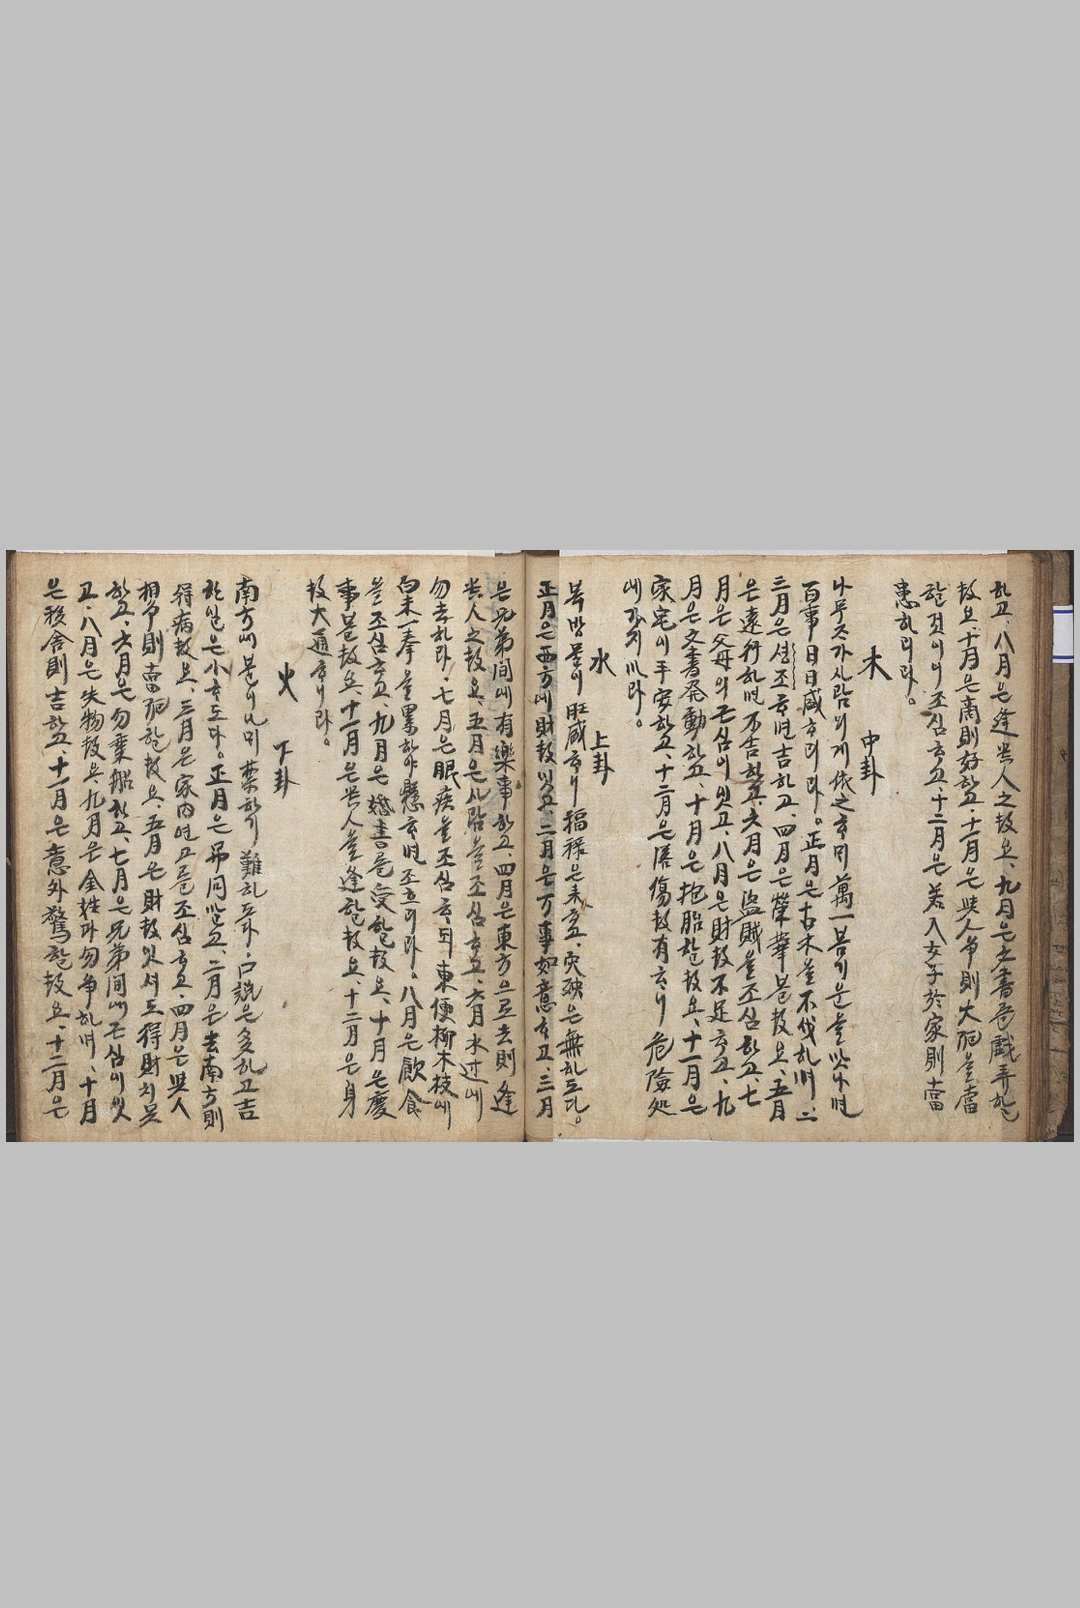 하고、八月은 逢貴人之故요、九月은 文書을 戱弄하는
故요、十月은 商則好하고、十一月은 與人爭則大禍을 當
할 것이니 조심하고、十二月은 若入女子於家則當
患하리라。
木 中卦
나무조가 사람의게 依之하며 萬一 봄기운을 맛나면
百事日日盛하리라。正月은 古木을 不伐하며 二
三月은 조흐면 吉하고、四月은 榮華볼 故요、五月
은 遠行하면 不吉하고、六月은 盜賊을 조심하고、七
月은 父母의 근심이 잇고、八月은 財數不足하고、九
月은 文書發動하고、十月은 抱胎할 故요、十一月은
家宅이 平安하고、十二月은 傷故有하니 危險処
에 가지 마라。
水 上卦
북방물이 旺盛하니 福祿은 未하고、灾殃은 無하도다。
正月은 西方에 財數잇고、二月은 万事如意하고、三月
은 兄弟間에 有樂事하고、四月은 東方으로 去則逢
貴人之故요、五月은 사람을 조심하고、六月 水边에
勿去하라、七月은 眼疾을 조심하되 東便柳木枝에
白米一奉을 하야 懸하면 조흐리라。八月은 飮食
을 조심하고、九月은 을 受할 故요、十月은 慶
事볼 故요、十一月은 貴人을 逢할 故요、十二月은 身
故大通하니라。
火 下卦
南方에 불이니 하기 難하도다、口說은 多하고 吉
한 일은 小하도다。正月은 吊问말고、二月은 去南方則
得病故요、三月은 家內 조심하고、四月은 與人
相爭則當禍할 故요、五月은 財數잇셔도 得財치 못
하고、六月은 勿乘船하고、七月은 兄弟間에 근심이 잇
고、八月은 失物故요、九月은 金姓과 勿爭하며、十月
은 移舍則吉하고、十一月은 意外驚할 故요、十二月은